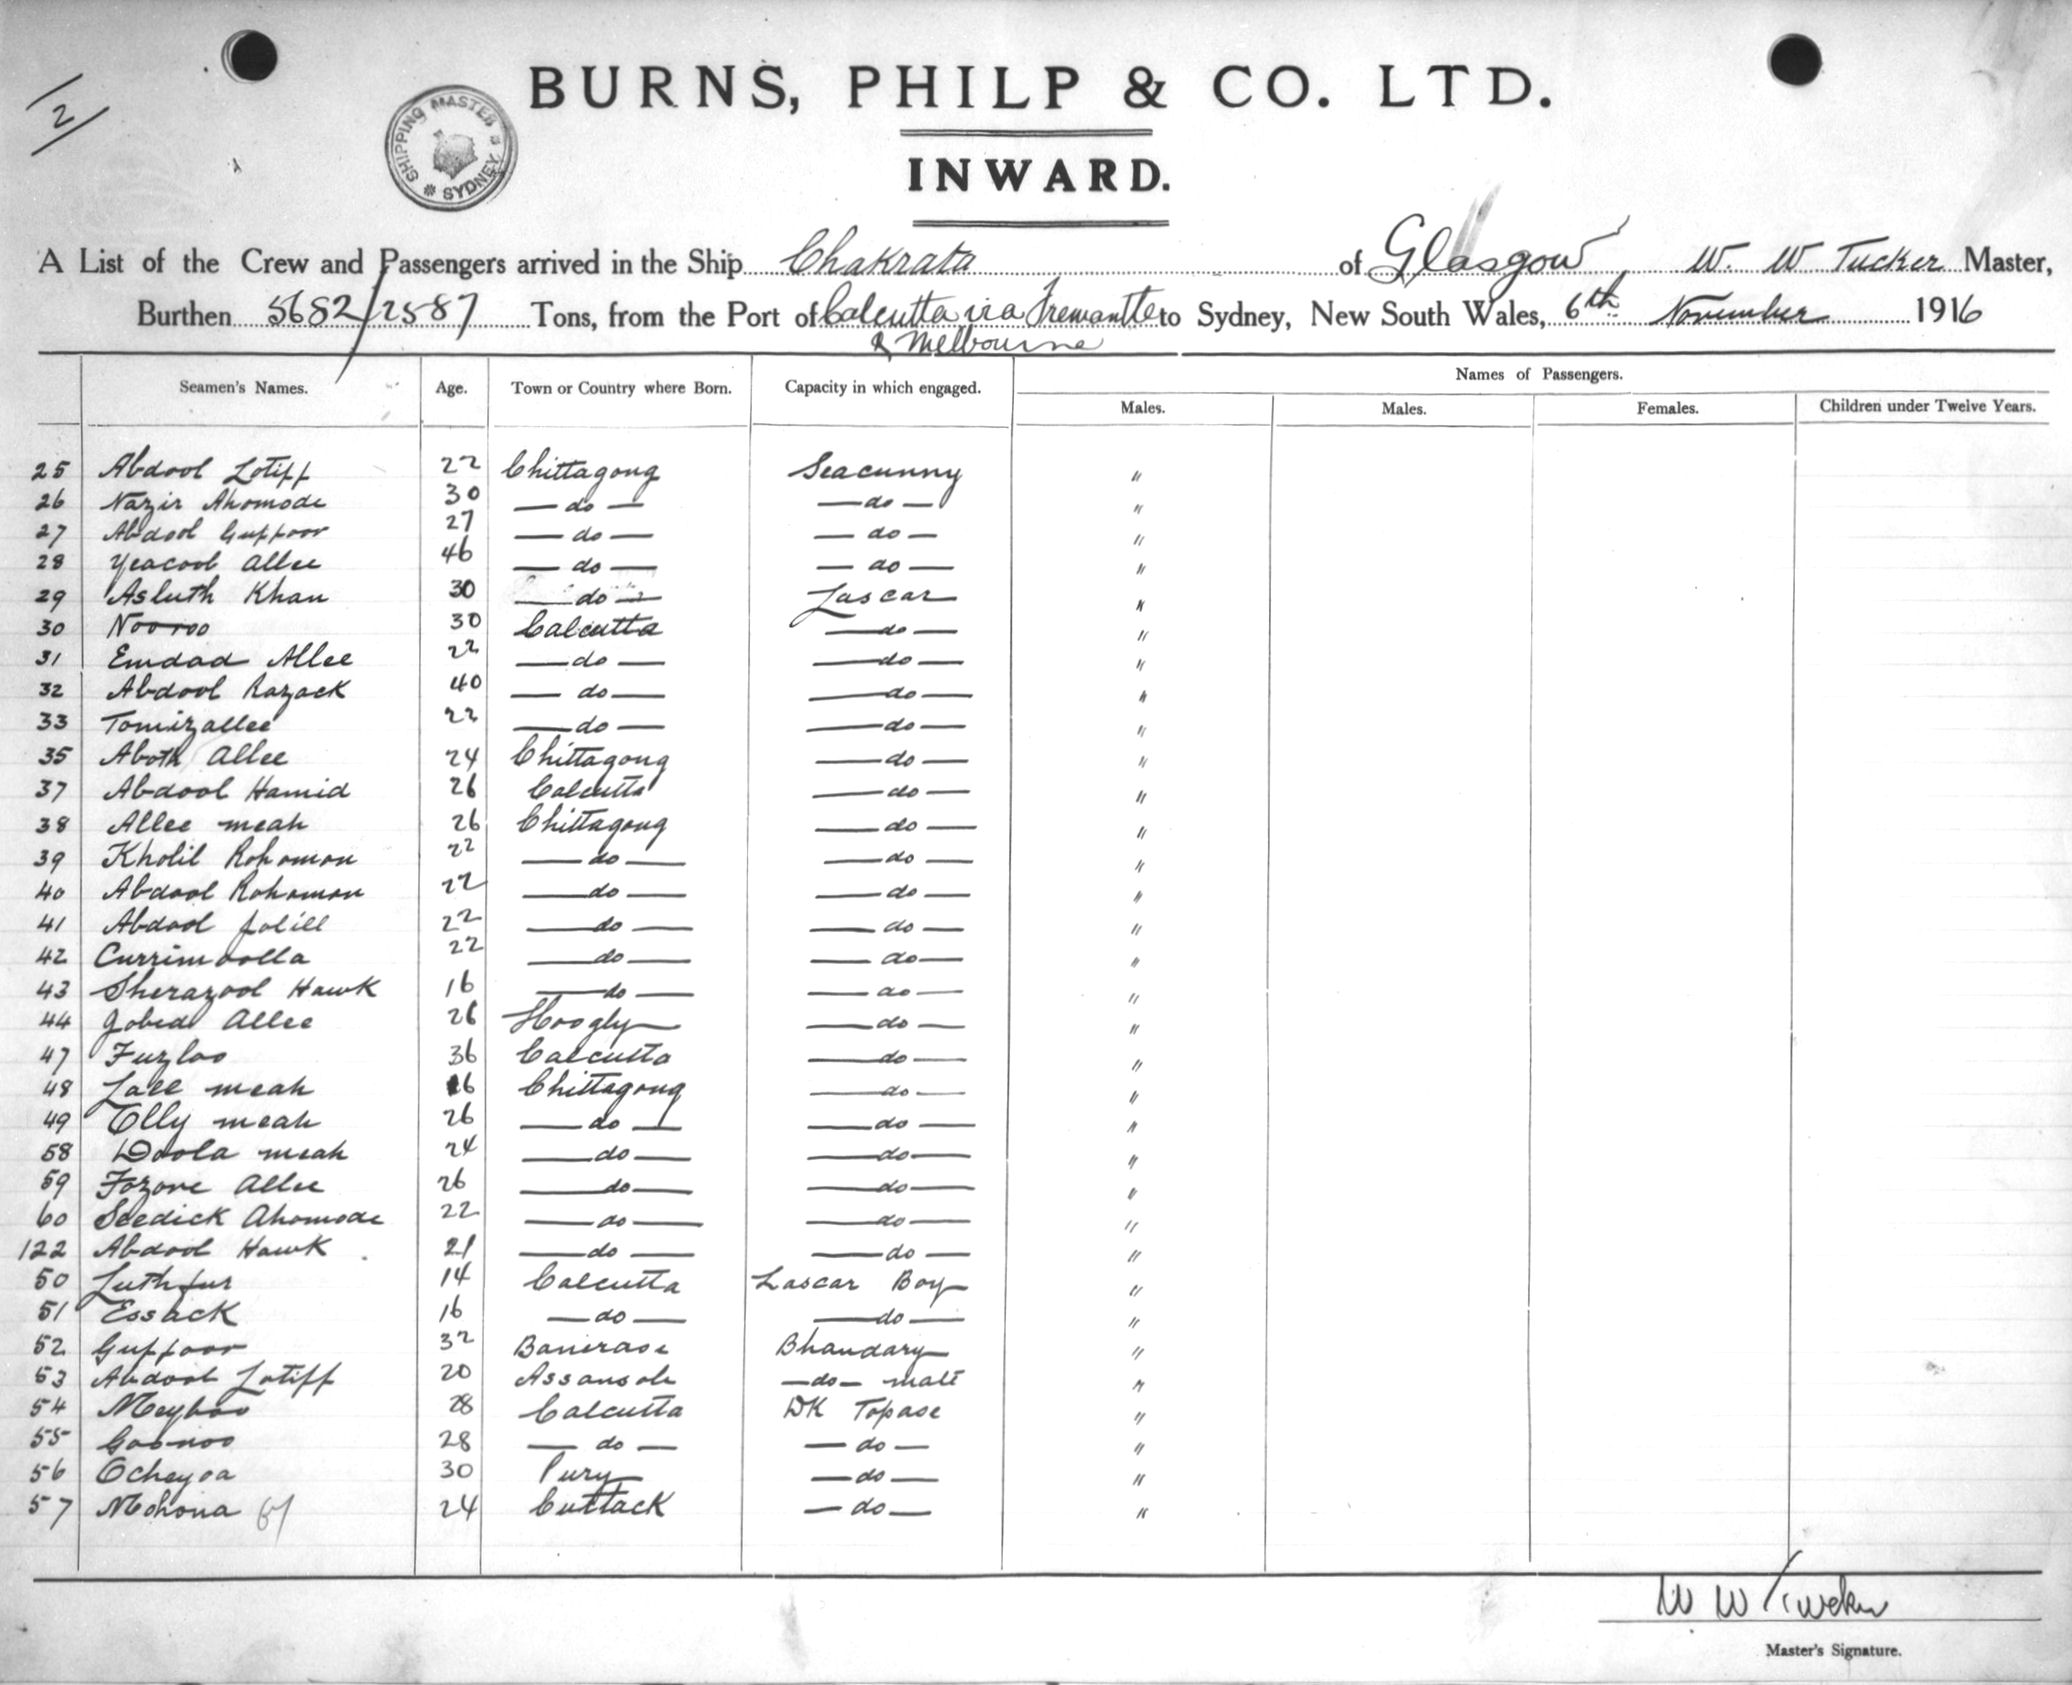 2
SHIPPING MASTER
SYDNEY
BURNS, PHILP & CO. LTD.
INWARD.
A List of the Crew and Passengers arrived in the Ship Chakrata of Glasgow W. W Tucker Master,
Burthen 5682/2587 Tons, from the Port of Calcutta via Fremantle to Sydney, New South Wales, 6th November 1916
& Melbourne
Names of Passengers.
Seamen's Names. Age. Town or Country where Born. Capacity in which engaged. Males. Males. Females. Children under Twelve Years.
25 Abdool Lotiff 22 Chittagong Seacunny "
26 Nazir Ahomode 30 — do — — do — "
27 Abdool Guffoor 27 — do — — do — "
28 Yeacoob Allee 46 — do — — do — "
29 Asluth Khan 30 — do — Lascar "
30 Nooroo 30 Calcutta — do — "
31 Emdad Allee 22 — do — — do — "
32 Abdool Razack 40 — do — — do — "
33 Tomizallee 22 — do — — do — "
35 Aboth Allee 24 Chittagong — do — "
37 Abdool Hamid 26 Calcutta — do — "
38 Allee meah 26 Chittagong — do — "
39 Kholil Rohomon 22 — do — — do — "
40 Abdool Rohomon 22 — do — — do — "
41 Abdool Jolill 22 — do — — do — "
42 Currimoolla 22 — do — — do — "
43 Sherazool Hawk 16 — do — — do — "
44 Jobed Allee 26 Hoogly — do — "
47 Fuzloo 36 Calcutta — do — "
48 Lall meah 26 Chittagong — do — "
49 Olly meah 26 — do — — do — "
58 Doola meah 24 — do — — do — "
59 Fozore Allee 26 — do — — do — "
60 Seedick Ahomode 22 — do — — do — "
122 Abdool Hawk 21 — do — — do — "
50 Luthfur 14 Calcutta Lascar Boy "
51 Essack 16 — do — — do — "
52 Guffoor 32 Banerase Bhandary "
53 Abdool Lotiff 20 Assansole — do — mate "
54 Meyhoo 28 Calcutta DK Topase "
55 Goonoo 28 — do — — do — "
56 Ocheyoa 30 Pury — do — "
57 Mohona 24 Cuttack — do — "
W W Tucker
Master's Signature.